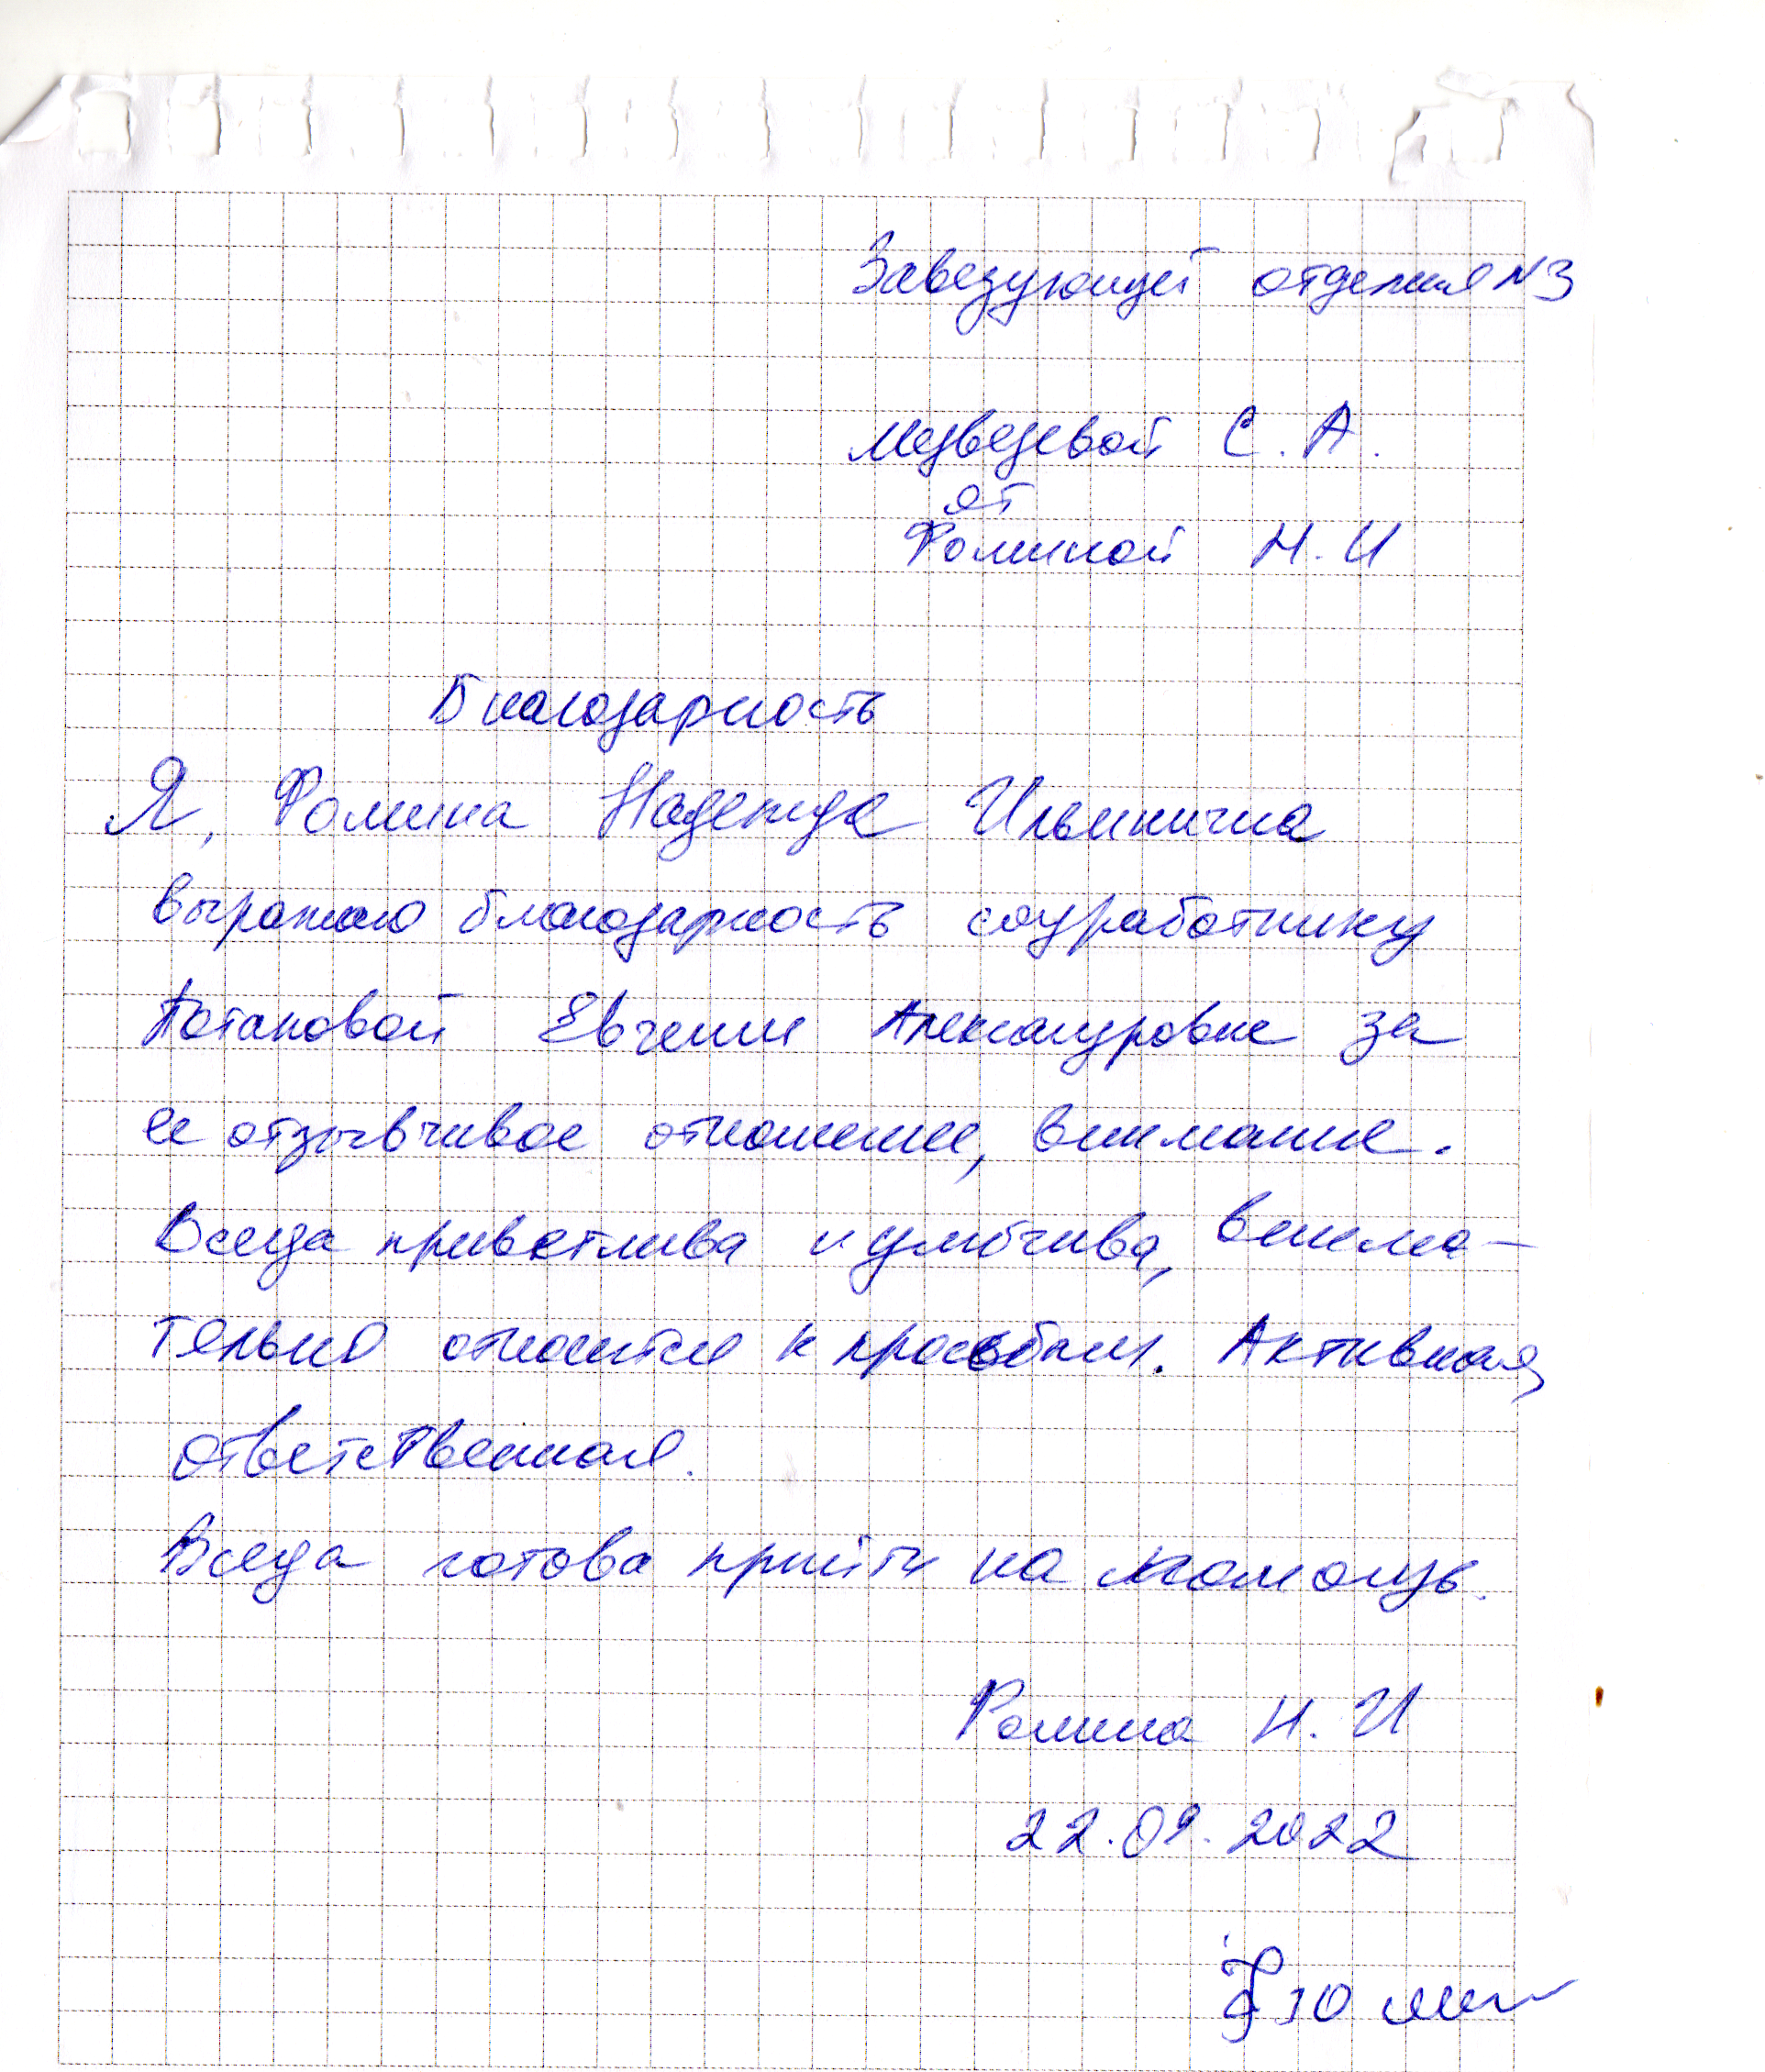 Заведующей отделения N3
Медведевой С. А.
от
Фоминой Н. И
Благодарность
Я, Фомина Надежда Ильинична
выражаю благодарность соцработнику
Потаповой Евгении Александровне за
ее отзывчивое отношение, внимание.
Всегда приветлива и улыбчива, внима-
тельно относится к просьбам. Активная,
ответственная.
Всегда готова прийти на помощь.
Фомина Н. И
22.09.2022